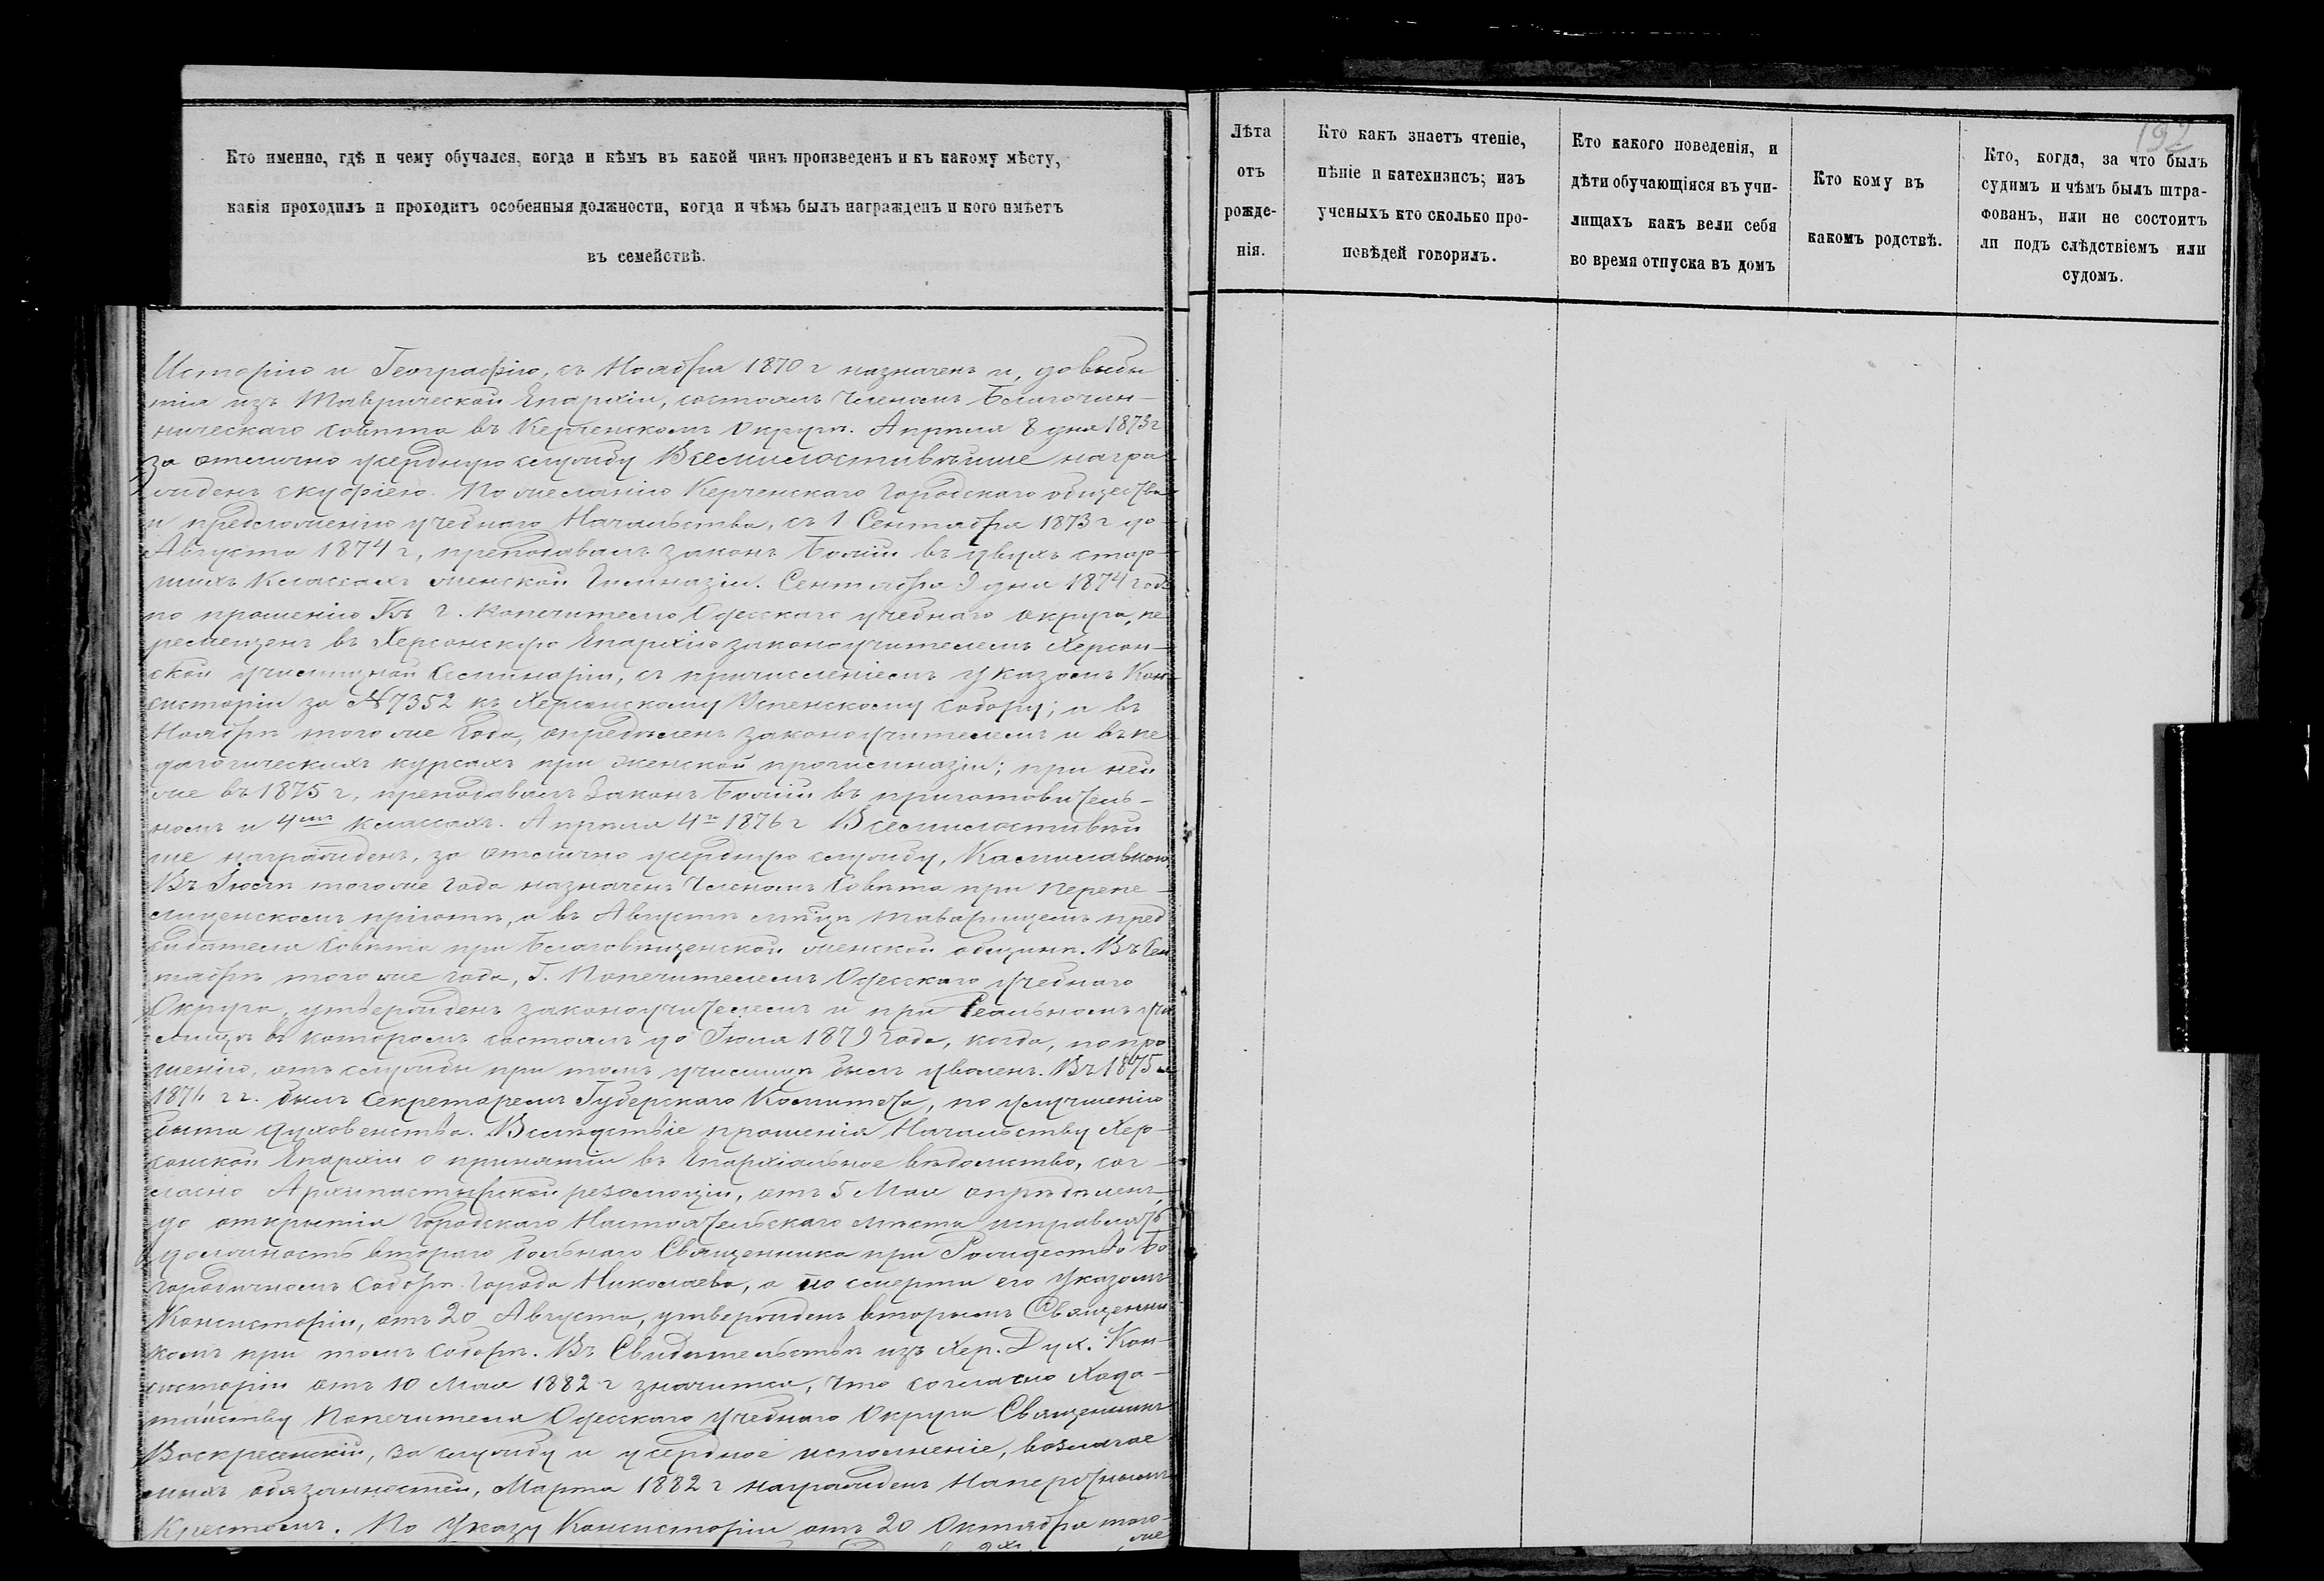 Кто именно, гдѣ и чему обучался, когда и кѣмъ въ какой чинъ произведенъ и къ какому мѣсту,
какія проходилъ и проходитъ особенныя должности, когда и чѣмъ былъ награжденъ и кого имѣетъ
въ семействѣ.
Исторію и Географію, съ Ноября 1870 г назначенъ и, до выбы
тія изъ Таврической Епархіи, состоялъ Членомъ Благочин-
ническаго Совѣта въ Керченскомъ Округѣ. Апрѣля 8 дня 1873 г
за отлично усердную службу Всемилостивѣйше награ
жденъ скуфіею. По желанію Керченскаго Городскаго общества
и предложенію учебнаго Начальства, съ 1 Сентября 1873 г до
Августа 1874 г, преподавалъ законъ Божій въ двухъ стар-
шихъ Классахъ женской Гимназіи. Сентября 9 дня 1874 года
по прошенію Къ г. Попечителю Одесскаго учебнаго округа, пе
ремѣщенъ въ Херсонскую Епархію законоучителемъ Херсон-
ской училищной Семинаріи, съ причисленіемъ Указомъ Кон-
систоріи за № 7352 къ Херсонскому Успенскому Собору; и въ
Ноябрѣ того же Года, опредѣленъ законоучителемъ и въ пе
дагогическихъ курсахъ при женской прогимназіи; при ней
же въ 1875 г, преподавалъ Законъ Божій въ приготовитель-
номъ и 4мъ классахъ. Апрѣля 4го 1876 г Всемилостивѣй
ше награжденъ, за отлично усердную службу, Камилавкою
Въ Іюлѣ того же года назначенъ Членомъ Совѣта при
пріютѣ, а въ Августѣ м-цѣ товарищемъ пред
сѣдателя Совѣта при Благовѣщенской женской общинѣ. Въ Сен
тябрѣ того же года, Г. Попечителемъ Одесскаго учебнаго
Округа, утвержденъ законоучителемъ и при Реальномъ учи
лищѣ въ которомъ состоялъ до Іюля 1879 года, когда, по про
шенію, отъ службы при томъ училищѣ былъ уволенъ. Въ 1875 и
1876 г г. былъ Секретаремъ Губерскаго Комитета, по улучшенію
быта духовенства. Вслѣдствіе прошенія Начальству Хер-
сонской Епархіи о принятіи въ Епархіальное вѣдомство, сог-
ласно Архипастырской резолюціи, отъ 5 Мая опредѣленъ,
до открытія Городскаго Настоятельскаго мѣста исправлять
должность втораго больнаго Священника при Рождество Бо
городичномъ Соборѣ Города Николаева, а по смерти его Указомъ
Консисторіи, отъ 20 Августа, утвержденъ вторымъ Священни
комъ при томъ Соборѣ. Въ Свидѣтельствѣ изъ Хер. Дух. Кон-
систоріи отъ 10 Мая 1882 г значится, что согласно Хода-
тайству Попечителя Одесскаго учебнаго Округа Священникъ
Воскресенскій, за службу и усердное исполненіе, возлагае
мыхъ обязанностей, Марта 1882 г награжденъ Наперснымъ
Крестомъ. По Указу Консисторіи отъ 20 Октября того-
же
Лѣта
отъ
рожде-
нія.
Кто какъ знаетъ чтеніе,
пѣніе и катехизисъ; изъ
ученыхъ кто сколько про-
повѣдей говорилъ.
Кто какого поведенія, и
дѣти обучающіяся въ учи-
лищахъ какъ вели себя
во время отпуска въ домъ
Кто кому въ
какомъ родствѣ.
192
Кто, когда, за что былъ
судимъ и чѣмъ былъ штра-
фованъ, или не состоитъ
ли подъ слѣдствіемъ или
судомъ.